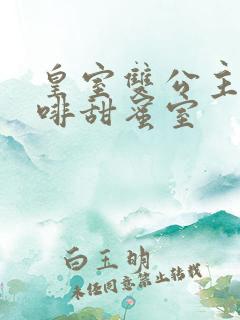 皇室雙公主
啡甜蜜室
白玉明
未经同意禁止转载